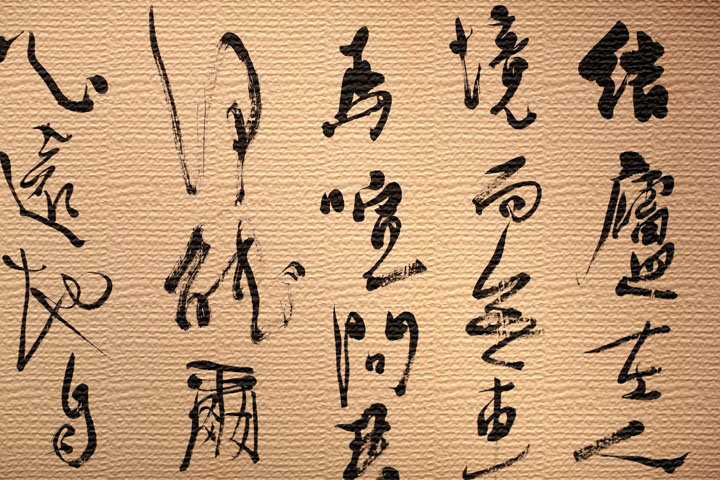 結廬在人
境而無車
馬喧問君
何能爾
心遠地自